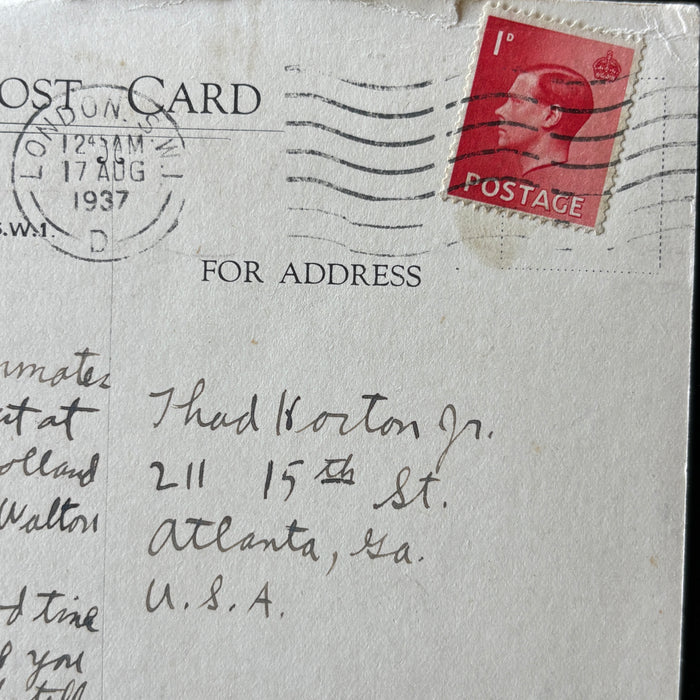 OST CARD
LONDON. S.W.1
12 45 AM
17 AUG
1937
D
1D
POSTAGE
S.W.1.
FOR ADDRESS
Thad Horton Jr.
211 15th St.
Atlanta, Ga.
U.S.A.
nmates
at
olland
Walton
d time
you